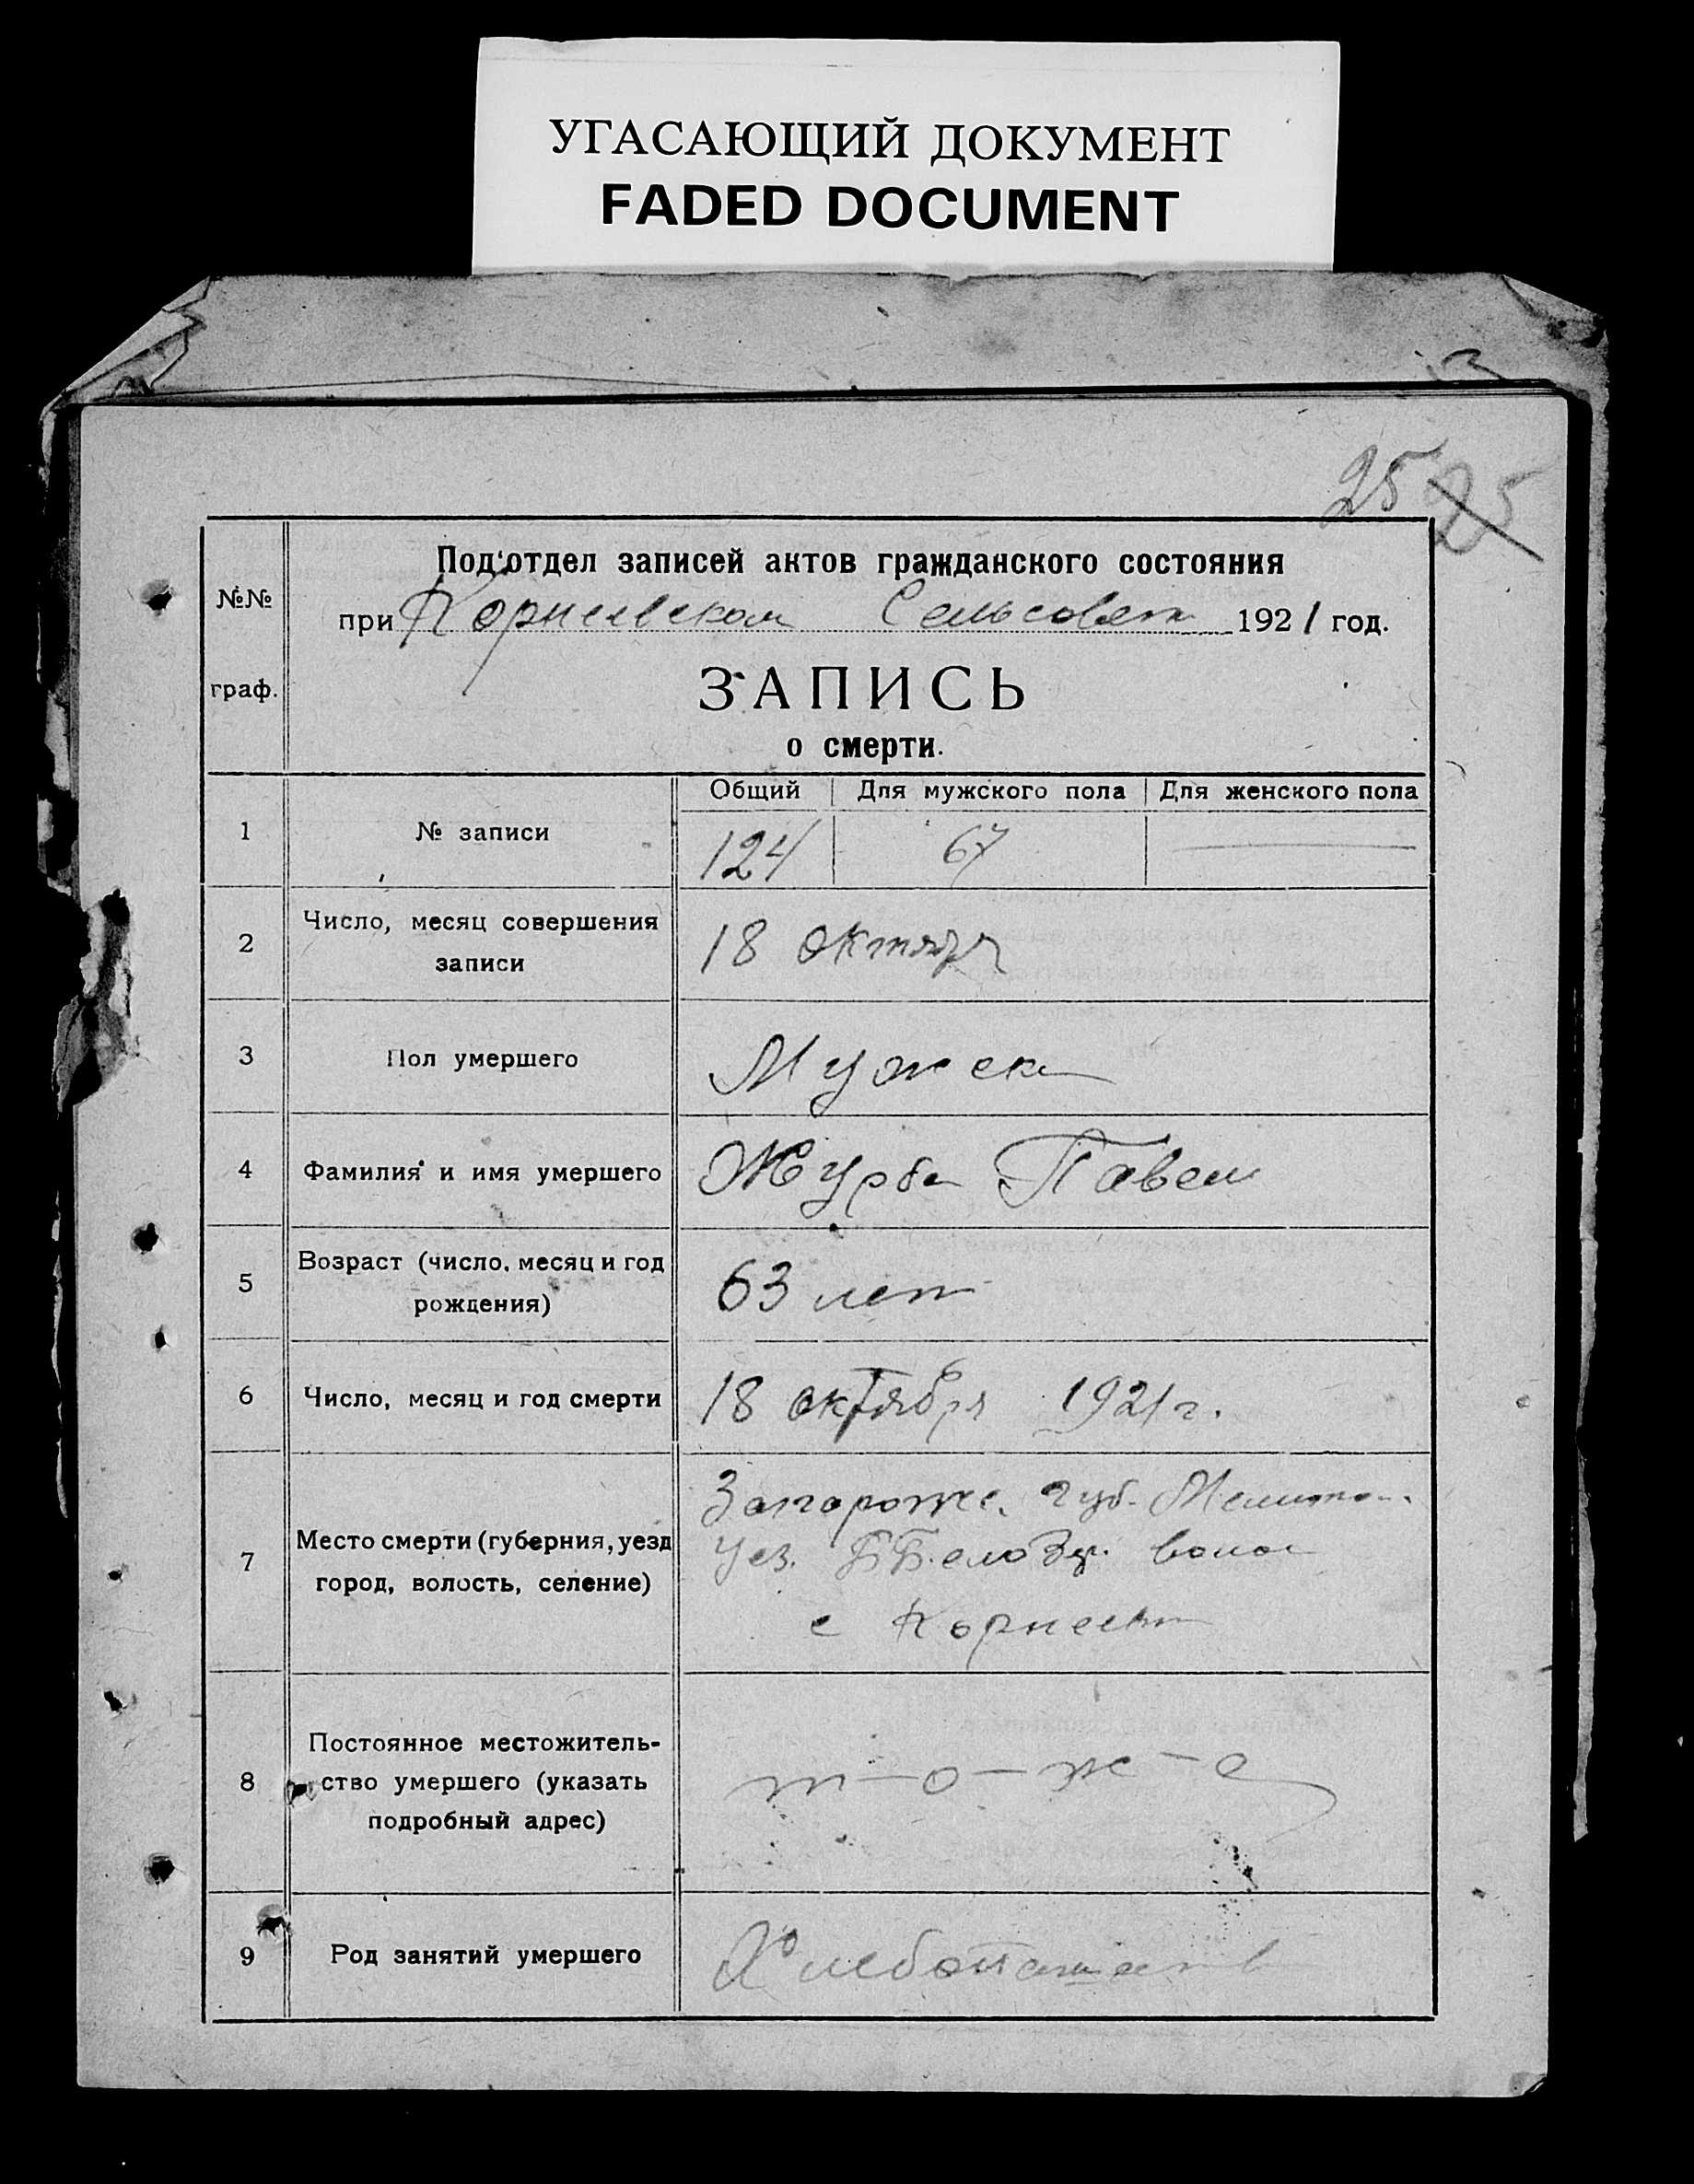 УГАСАЮЩИЙ ДОКУМЕНТ
FADED DOCUMENT
25 25
№№
граф.
Под'отдел записей актов гражданского состояния
при Корнеевском Сельсовет 1921 год.
ЗАПИСЬ
о смерти.
Общий Для мужского пола Для женского пола
1 № записи 124 67
2 Число, месяц совершения
записи
18 октября
3 Пол умершего Мужск
4 Фамилия и имя умершего Журба Павел
5 Возраст (число, месяц и год
рождения)
63 лет
6 Число, месяц и год смерти 18 октября 1921 г.
7 Место смерти (губерния, уезд
город, волость, селение)
Запорожс. губ. Мелитоп.
Уез. волос
с Корнеевк
8 Постоянное местожитель-
ство умершего (указать
подробный адрес)
т-о-ж-е
9 Род занятий умершего Хлебопашеств